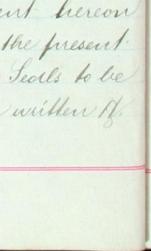 nt hereon
the present
Seals to be
written